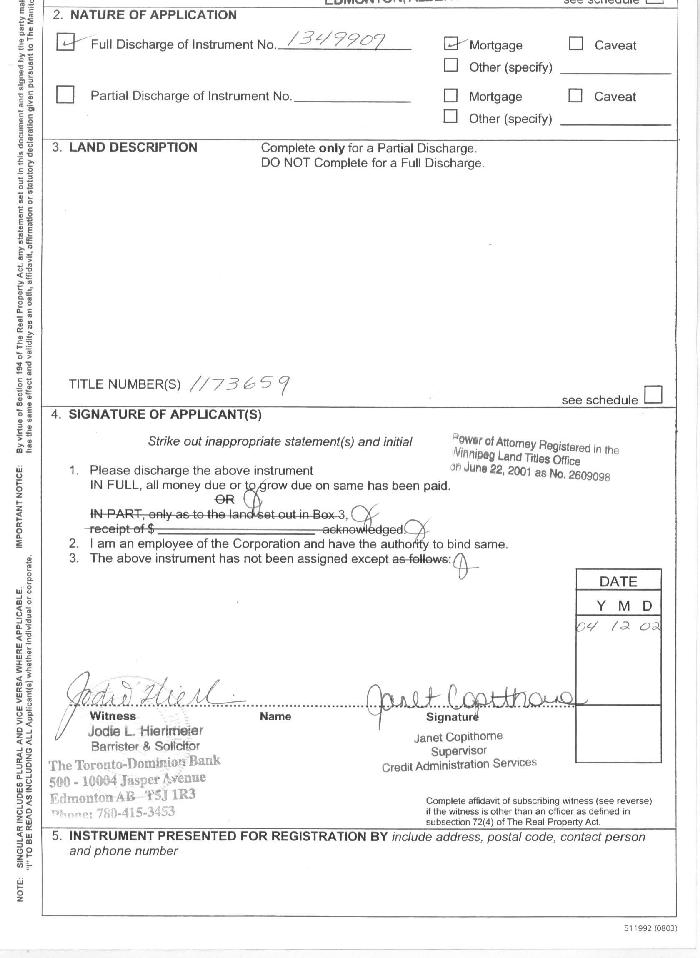 see schedule
2. NATURE OF APPLICATION
Full Discharge of Instrument No. 1349909
Mortgage Caveat
Other (specify)
Partial Discharge of Instrument No.
Mortgage Caveat
Other (specify)
3. LAND DESCRIPTION Complete only for a Partial Discharge.
DO NOT Complete for a Full Discharge.
TITLE NUMBER(S) 1173659
see schedule
4. SIGNATURE OF APPLICANT(S)
Strike out inappropriate statement(s) and initial
Power of Attorney Registered in the
Winnipeg Land Titles Office
on June 22, 2001 as No. 2609098
1. Please discharge the above instrument
IN FULL, all money due or to grow due on same has been paid.
OR
IN PART, only as to the land set out in Box 3,
receipt of $ acknowledged
2. I am an employee of the Corporation and have the authority to bind same.
3. The above instrument has not been assigned except as follows:
DATE
Y M D
04 12 02
Witness Name Signature
Jodie L. Hierlmeier
Barrister & Solicitor
The Toronto-Dominion Bank
500 - 10004 Jasper Avenue
Edmonton AB T5J 1R3
Phone: 780-415-3453
Janet Copithorne
Supervisor
Credit Administration Services
Complete affidavit of subscribing witness (see reverse)
if the witness is other than an officer as defined in
subsection 72(4) of The Real Property Act.
5. INSTRUMENT PRESENTED FOR REGISTRATION BY include address, postal code, contact person
and phone number
511992 (0803)
IMPORTANT NOTICE: By virtue of Section 194 of The Real Property Act, any statement set out in this document and signed by the party
has the same effect and validity as an oath, affidavit, affirmation or statutory declaration given pursuant to The
NOTE: SINGULAR INCLUDES PLURAL AND VICE VERSA WHERE APPLICABLE.
"I" TO BE READ AS INCLUDING ALL Applicant(s) whether individual or corporate.